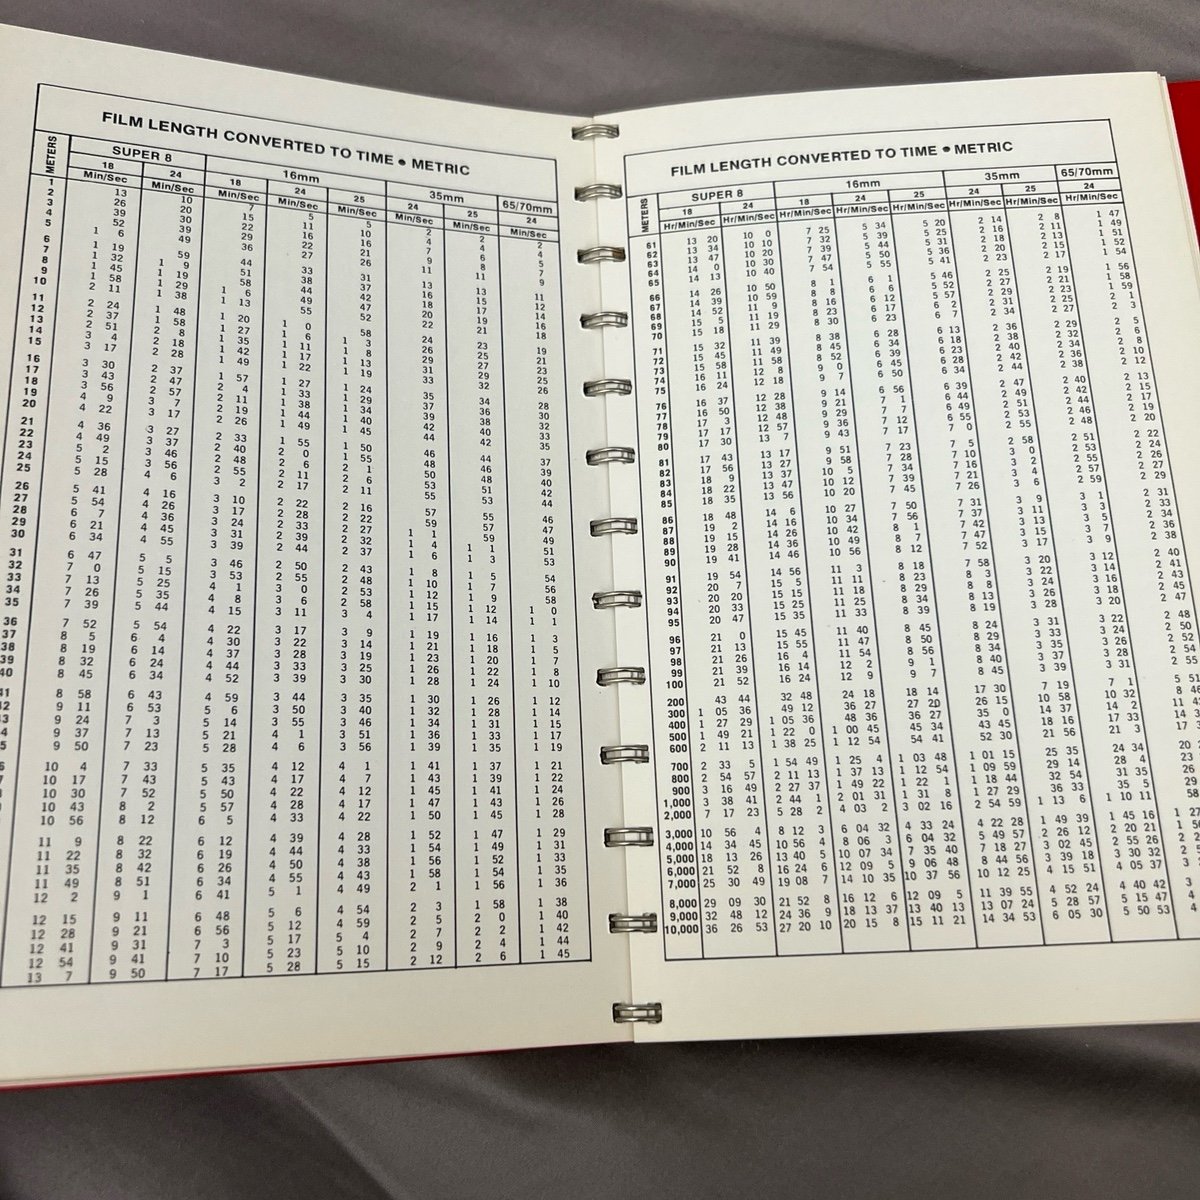 FILM LENGTH CONVERTED TO TIME ● METRIC
METERS
SUPER 8 16mm 35mm 65/70mm
18 24 18 24 25 24 25 24
Min/Sec Min/Sec Min/Sec Min/Sec Min/Sec Min/Sec Min/Sec Min/Sec
1 13 10 7 5 5 2 2 2
2 26 20 15 11 10 4 4 4
3 39 30 22 16 16 7 6 5
4 52 39 29 22 21 9 8 7
5 1 6 49 36 27 26 11 11 9
6 1 19 59 44 33 31 13 13 11
7 1 32 1 9 51 38 37 16 15 12
8 1 45 1 19 58 44 42 18 17 14
9 1 58 1 29 1 6 49 47 20 19 16
10 2 11 1 38 1 13 55 52 22 21 18
11 2 24 1 48 1 20 1 0 58 24 23 19
12 2 37 1 58 1 27 1 6 1 3 26 25 21
13 2 51 2 8 1 35 1 11 1 8 29 27 23
14 3 4 2 18 1 42 1 17 1 13 31 29 25
15 3 17 2 28 1 49 1 22 1 19 33 32 26
16 3 30 2 37 1 57 1 27 1 24 35 34 28
17 3 43 2 47 2 4 1 33 1 29 37 36 30
18 3 56 2 57 2 11 1 38 1 34 39 38 32
19 4 9 3 7 2 19 1 44 1 40 42 40 33
20 4 22 3 17 2 26 1 49 1 45 44 42 35
21 4 36 3 27 2 33 1 55 1 50 46 44 37
22 4 49 3 37 2 40 2 0 1 55 48 46 39
23 5 2 3 46 2 48 2 6 2 1 50 48 40
24 5 15 3 56 2 55 2 11 2 6 53 51 42
25 5 28 4 6 3 2 2 17 2 11 55 53 44
26 5 41 4 16 3 10 2 22 2 16 57 55 46
27 5 54 4 26 3 17 2 28 2 22 59 57 47
28 6 7 4 36 3 24 2 33 2 27 1 1 59 49
29 6 21 4 45 3 31 2 39 2 32 1 4 1 1 51
30 6 34 4 55 3 39 2 44 2 37 1 6 1 3 53
31 6 47 5 5 3 46 2 50 2 43 1 8 1 5 54
32 7 0 5 15 3 53 2 55 2 48 1 10 1 7 56
33 7 13 5 25 4 1 3 0 2 53 1 12 1 9 58
34 7 26 5 35 4 8 3 6 2 58 1 15 1 12 1 0
35 7 39 5 44 4 15 3 11 3 4 1 17 1 14 1 1
36 7 52 5 54 4 22 3 17 3 9 1 19 1 16 1 3
37 8 5 6 4 4 30 3 22 3 14 1 21 1 18 1 5
38 8 19 6 14 4 37 3 28 3 19 1 23 1 20 1 7
39 8 32 6 24 4 44 3 33 3 25 1 26 1 22 1 8
40 8 45 6 34 4 52 3 39 3 30 1 28 1 24 1 10
8 58 6 43 4 59 3 44 3 35 1 30 1 26 1 12
9 11 6 53 5 6 3 50 3 40 1 32 1 28 1 14
9 24 7 3 5 14 3 55 3 46 1 34 1 31 1 15
9 37 7 13 5 21 4 1 3 51 1 36 1 33 1 17
9 50 7 23 5 28 4 6 3 56 1 39 1 35 1 19
10 4 7 33 5 35 4 12 4 1 1 41 1 37 1 21
10 17 7 43 5 43 4 17 4 7 1 43 1 39 1 22
10 30 7 52 5 50 4 22 4 12 1 45 1 41 1 24
10 43 8 2 5 57 4 28 4 17 1 47 1 43 1 26
10 56 8 12 6 5 4 33 4 22 1 50 1 45 1 28
11 9 8 22 6 12 4 39 4 28 1 52 1 47 1 29
11 22 8 32 6 19 4 44 4 33 1 54 1 49 1 31
11 35 8 42 6 26 4 50 4 38 1 56 1 52 1 33
11 49 8 51 6 34 4 55 4 43 1 58 1 54 1 35
12 2 9 1 6 41 5 1 4 49 2 1 1 56 1 36
12 15 9 11 6 48 5 6 4 54 2 3 1 58 1 38
12 28 9 21 6 56 5 12 4 59 2 5 2 0 1 40
12 41 9 31 7 3 5 17 5 4 2 7 2 2 1 42
12 54 9 41 7 10 5 23 5 10 2 9 2 4 1 44
13 7 9 50 7 17 5 28 5 15 2 12 2 6 1 45
FILM LENGTH CONVERTED TO TIME ● METRIC
METERS
SUPER 8 16mm 35mm 65/70mm
18 24 18 24 25 24 25 24
Hr/Min/Sec Hr/Min/Sec Hr/Min/Sec Hr/Min/Sec Hr/Min/Sec Hr/Min/Sec Hr/Min/Sec Hr/Min/Sec
61 13 20 10 0 7 25 5 34 5 20 2 14 2 8 1 47
62 13 34 10 10 7 32 5 39 5 25 2 16 2 11 1 49
63 13 47 10 20 7 39 5 44 5 31 2 18 2 13 1 51
64 14 0 10 30 7 47 5 50 5 36 2 20 2 15 1 52
65 14 13 10 40 7 54 5 55 5 41 2 23 2 17 1 54
66 14 26 10 50 8 1 6 1 5 46 2 25 2 19 1 56
67 14 39 10 59 8 8 6 6 5 52 2 27 2 21 1 58
68 14 52 11 9 8 16 6 12 5 57 2 29 2 23 1 59
69 15 5 11 19 8 23 6 17 6 2 2 31 2 25 2 1
70 15 18 11 29 8 30 6 23 6 7 2 34 2 27 2 3
71 15 32 11 39 8 38 6 28 6 13 2 36 2 29 2 5
72 15 45 11 49 8 45 6 34 6 18 2 38 2 32 2 6
73 15 58 11 58 8 52 6 39 6 23 2 40 2 34 2 8
74 16 11 12 8 9 0 6 45 6 28 2 42 2 36 2 10
75 16 24 12 18 9 7 6 50 6 34 2 44 2 38 2 12
76 16 37 12 28 9 14 6 56 6 39 2 47 2 40 2 13
77 16 50 12 38 9 21 7 1 6 44 2 49 2 42 2 15
78 17 3 12 48 9 29 7 7 6 49 2 51 2 44 2 17
79 17 17 12 57 9 36 7 12 6 55 2 53 2 46 2 19
80 17 30 13 7 9 43 7 17 7 0 2 55 2 48 2 20
81 17 43 13 17 9 51 7 23 7 5 2 58 2 51 2 22
82 17 56 13 27 9 58 7 28 7 10 3 0 2 53 2 24
83 18 9 13 37 10 5 7 34 7 16 3 2 2 55 2 26
84 18 22 13 47 10 12 7 39 7 21 3 4 2 57 2 27
85 18 35 13 56 10 20 7 45 7 26 3 6 2 59 2 29
86 18 48 14 6 10 27 7 50 7 31 3 9 3 1 2 31
87 19 2 14 16 10 34 7 56 7 37 3 11 3 3 2 33
88 19 15 14 26 10 42 8 1 7 42 3 13 3 5 2 34
89 19 28 14 36 10 49 8 7 7 47 3 15 3 7 2 36
90 19 41 14 46 10 56 8 12 7 52 3 17 3 9 2 38
91 19 54 14 56 11 3 8 18 7 58 3 20 3 12 2 40
92 20 7 15 5 11 11 8 23 8 3 3 22 3 14 2 41
93 20 20 15 15 11 18 8 29 8 8 3 24 3 16 2 43
94 20 33 15 25 11 25 8 34 8 13 3 26 3 18 2 45
95 20 47 15 35 11 33 8 39 8 19 3 28 3 20 2 47
96 21 0 15 45 11 40 8 45 8 24 3 31 3 22 2 48
97 21 13 15 55 11 47 8 50 8 29 3 33 3 24 2 50
98 21 26 16 4 11 54 8 56 8 34 3 35 3 26 2 52
99 21 39 16 14 12 2 9 1 8 40 3 37 3 28 2 53
100 21 52 16 24 12 9 9 7 8 45 3 39 3 31 2 55
200 43 44 32 48 24 18 18 14 17 30 7 19 7 1 5 51
300 1 05 36 49 12 36 27 27 20 26 15 10 58 10 32 8 46
400 1 27 29 1 05 36 48 36 36 27 35 0 14 37 14 2 11
500 1 49 21 1 22 0 1 00 45 45 34 43 45 18 16 17 33 14
600 2 11 13 1 38 25 1 12 54 54 41 52 30 21 56 21 3 17
700 2 33 5 1 54 49 1 25 4 1 03 48 1 01 15 25 35 24 34 20
800 2 54 57 2 11 13 1 37 13 1 12 54 1 09 59 29 14 28 4 23
900 3 16 49 2 27 37 1 49 22 1 22 1 1 18 44 32 54 31 35 26
1,000 3 38 41 2 44 1 2 01 31 1 31 8 1 27 29 36 35 5 29
2,000 7 17 23 5 28 2 4 03 2 3 02 16 2 54 59 1 13 6 1 10 11 58
3,000 10 56 4 8 12 3 6 04 32 4 33 24 4 22 28 1 49 39 1 45 16 1 27
4,000 14 34 45 10 56 4 8 06 3 6 04 32 5 49 57 2 26 12 2 20 21 1
5,000 18 13 26 13 40 5 10 07 34 7 35 40 7 18 27 3 02 45 2 55 26 2
6,000 21 52 8 16 24 6 12 09 5 9 06 48 8 44 56 3 39 18 3 30 32 2
7,000 25 30 49 19 08 7 14 10 35 10 37 56 10 12 25 4 15 51 4 05 37 3
8,000 29 09 30 21 52 8 16 12 6 12 09 5 11 39 55 4 52 24 4 40 42 3
9,000 32 48 12 24 36 9 18 13 37 13 40 13 13 07 24 5 28 57 5 15 47 4
10,000 36 26 53 27 20 10 20 15 8 15 11 21 14 34 53 6 05 30 5 50 53 4